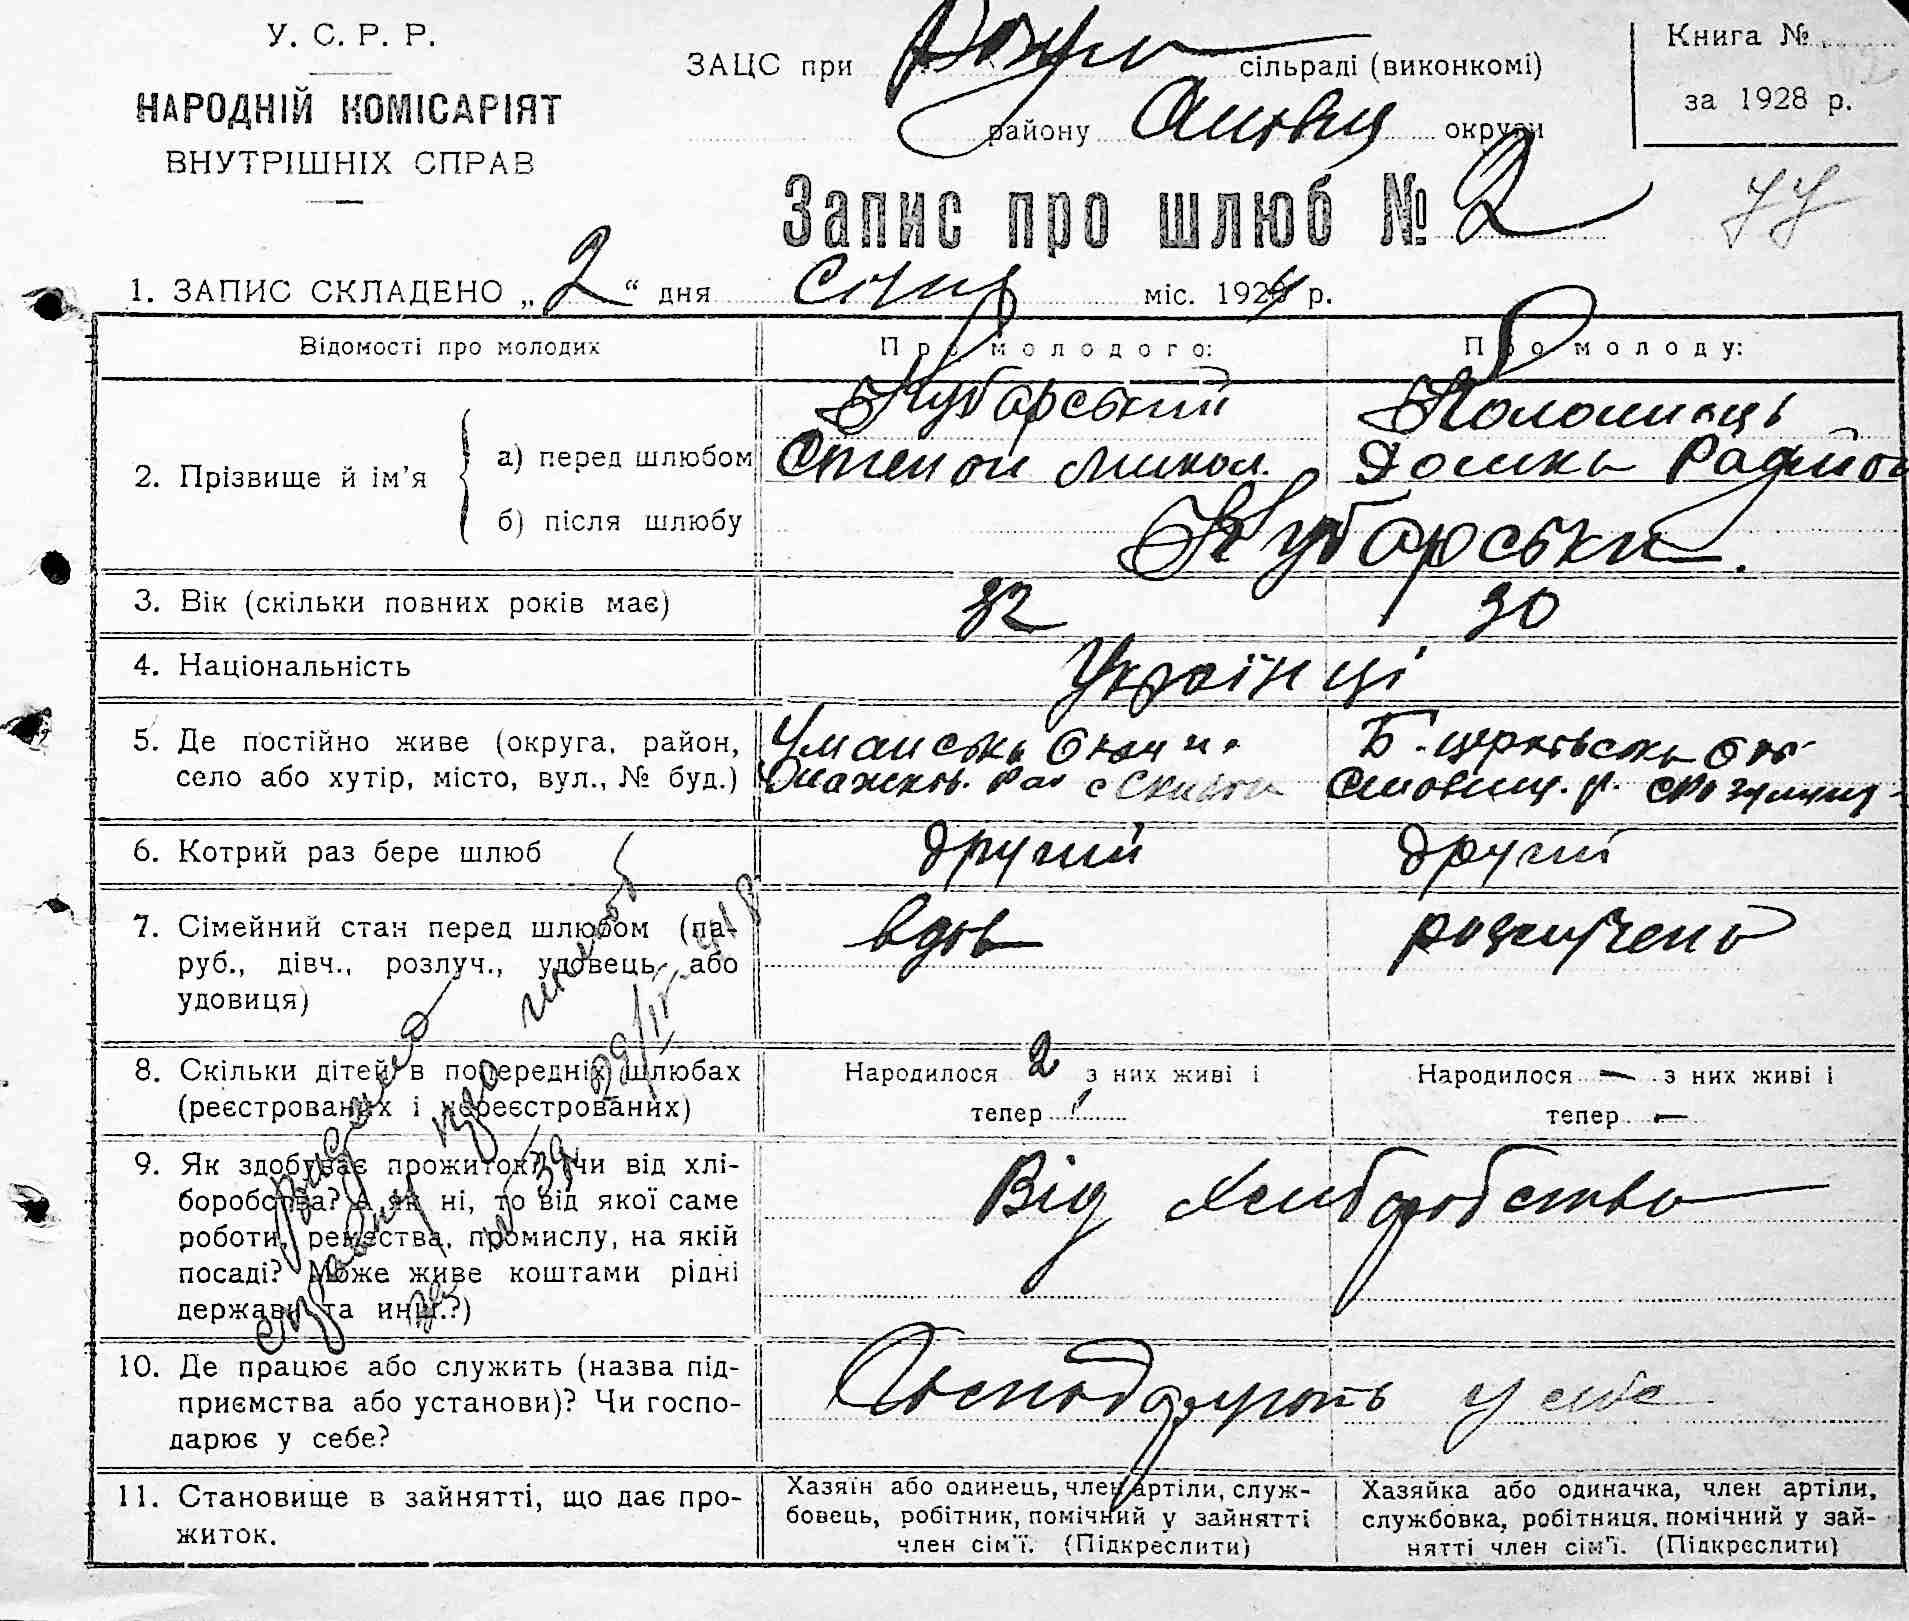 У. С. Р. Р.
НАРОДНІЙ КОМІСАРІЯТ
ВНУТРІШНІХ СПРАВ
ЗАЦС при сільраді (виконкомі)
району округи
Книга №
за 1928 р.
Запис про шлюб № 2
1. ЗАПИС СКЛАДЕНО „2“ дня Січня міс. 192 р.
Відомості про молодих
Про молодого:
Про молоду:
2. Прізвище й ім’я
а) перед шлюбом
б) після шлюбу
Кубарський
Степан Микол.
Коломієць
Домка
Кубарськи.
3. Вік (скільки повних років має)
32
30
4. Національність
Українці
5. Де постійно живе (округа, район,
село або хутір, місто, вул., № буд.)
Уманська
Б. церківська
6. Котрий раз бере шлюб
другий
другий
7. Сімейний стан перед шлюбом (па-
руб., дівч., розлуч., удовець або
удовиця)
вдов
розлучена
8. Скільки дітей в попередніх шлюбах
(реєстрованих і нереєстрованих)
Народилося 2 з них живі і
тепер 1
Народилося — з них живі і
тепер —
9. Як здобуває прожиток? (чи від хлі-
боробства? А як ні, то від якої саме
роботи, ремества, промислу, на якій
посаді? Може живе коштами рідні
держави та инш.?)
Від хліборобства
10. Де працює або служить (назва під-
приємства або установи)? Чи госпо-
дарює у себе?
Господарують у себе
11. Становище в зайнятті, що дає про-
житок.
Хазяїн або одинець, член артіли, служ-
бовець, робітник, помічний у зайнятті
член сім’ї. (Підкреслити)
Хазяйка або одиначка, член артіли,
службовка, робітниця, помічний у зай-
нятті член сім’ї. (Підкреслити)